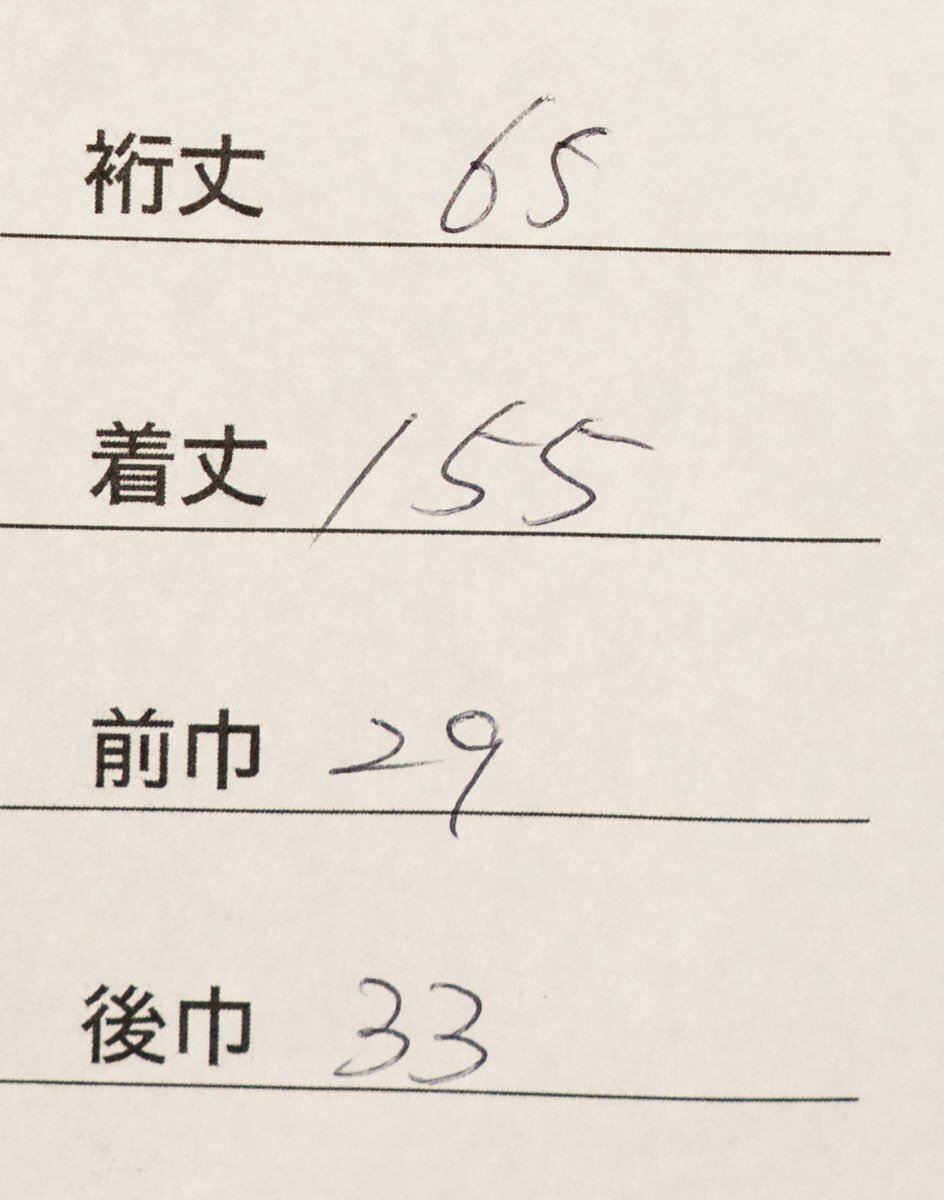 裄丈 65
着丈 155
前巾 29
後巾 33